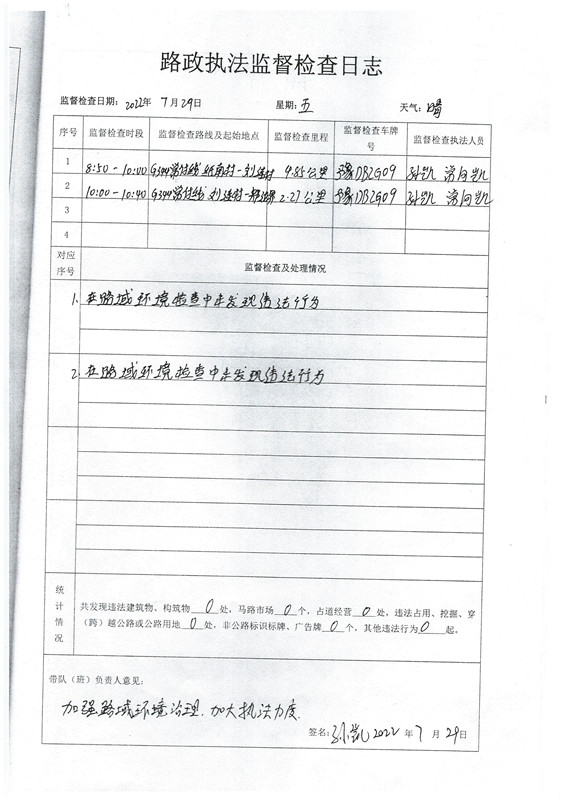 路政执法监督检查日志
监督检查日期：2022年 7月29日 星期：五 天气：晴
序号 监督检查时段 监督检查路线及起始地点 监督检查里程 监督检查车牌号 监督检查执法人员
1 8:50-10:00 G344 村-刘 村 4.85公里 豫DB2G09 孙凯
2 10:00-10:40 G344 刘 村- 2.27公里 豫DB2G09 孙凯
3
4
对应序号 监督检查及处理情况
1. 在路域环境检查中未发现违法行为
2. 在路域环境检查中未发现违法行为
统计情况
共发现违法建筑物、构筑物 0 处，马路市场 0 个，占道经营 0 处，违法占用、挖掘、穿
（跨）越公路或公路用地 0 处，非公路标识标牌、广告牌 0 个，其他违法行为 0 起。
带队（班）负责人意见：
加强路域环境治理，加大执法力度.
签名：孙凯 2022 年 7 月 29日